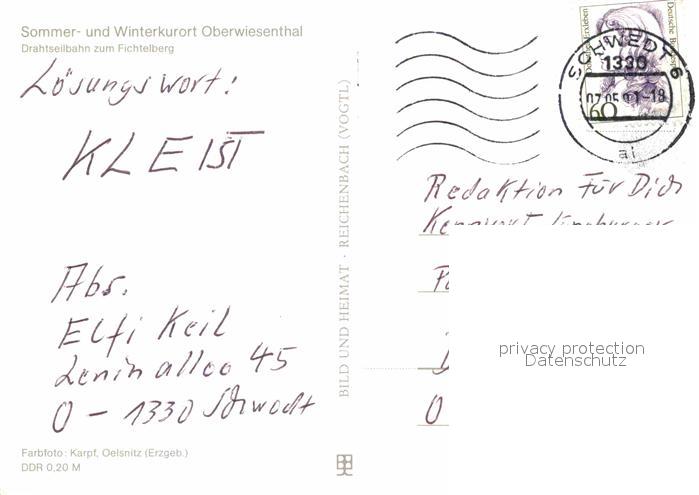 Sommer- und Winterkurort Oberwiesenthal
Drahtseilbahn zum Fichtelberg
Lösungswort:
KLEIST
Abs.
Elfi Keil
Leninallee 45
O - 1330 Schwedt
Farbfoto: Karpf, Oelsnitz (Erzgeb.)
DDR 0,20 M
BILD UND HEIMAT · REICHENBACH (VOGTL)
Deutsche Bundespost
60
SCHWEDT 6
1330
07.05.91-18
ai
Redaktion Für Dich
Kennwort
O
privacy protection
Datenschutz